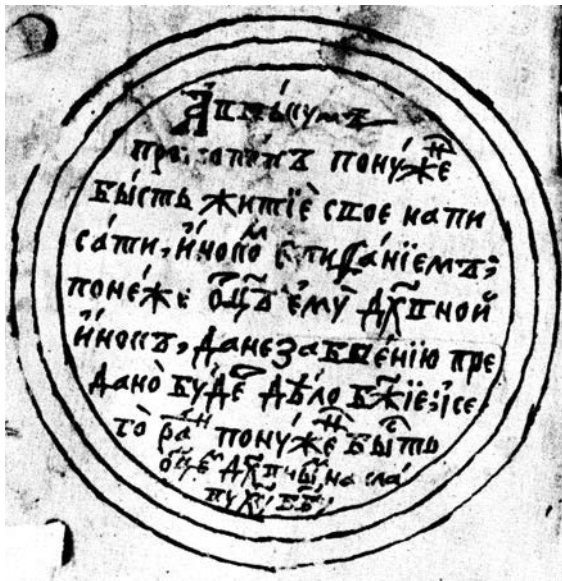 Авва́кумъ
протопопъ пону́женъ
бы́сть житїѐ свое напи
са́ти, и́нокомъ епифа́нїемъ;
поне́же ѻц҃ъ ему̀ дх҃вной
и́нокъ, да не забве́нїю пре
дано̀ бу́детъ дѣ́ло бж҃їе; и се
го̀ ра́ди пону́жен бы́сть
ѻц҃емъ дх҃вны́м на сла́
ву хр҃ту̀ бг҃у